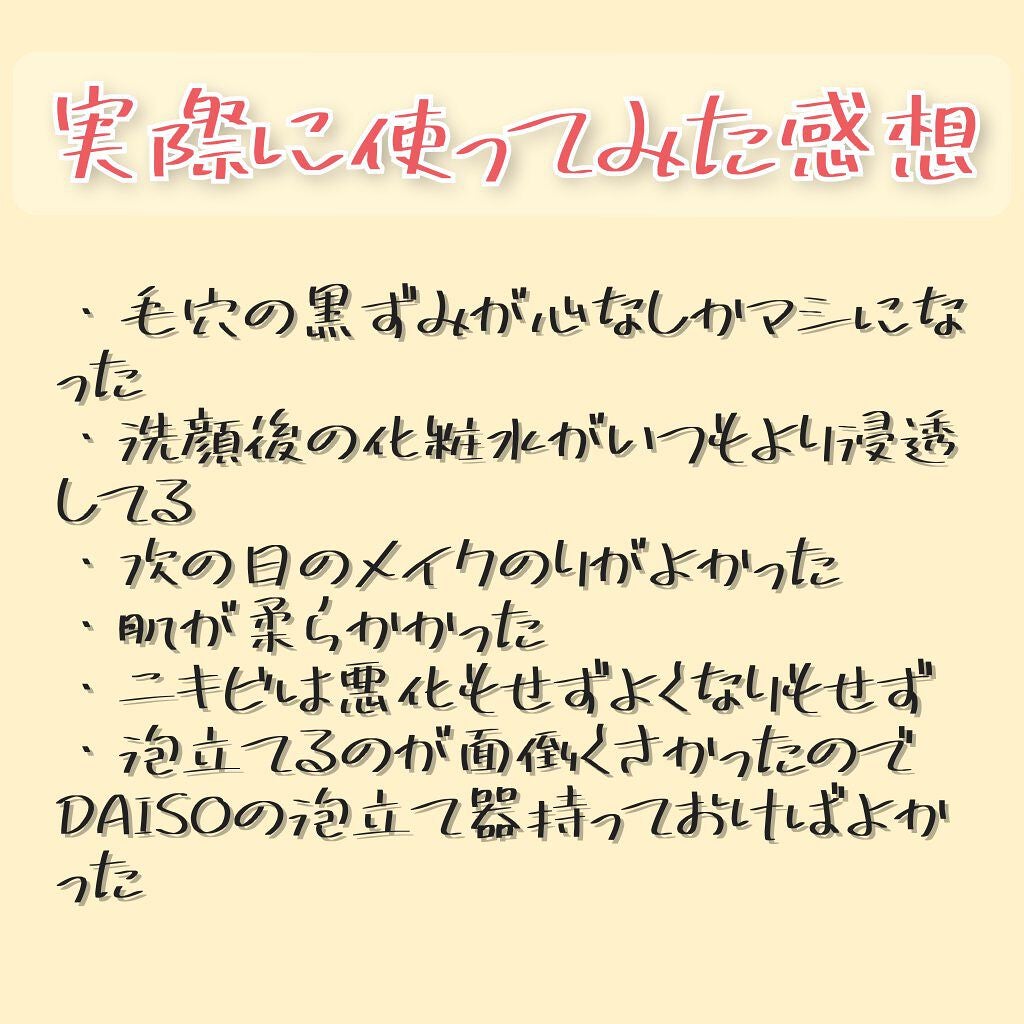 実際に使ってみた感想
・毛穴の黒ずみが心なしかマシにな
った
・洗顔後の化粧水がいつもより浸透
してる
・次の日のメイクのりがよかった
・肌が柔らかかった
・ニキビは悪化もせずよくなりもせず
・泡立てるのが面倒くさかったので
DAISOの泡立て器持っておけばよか
った